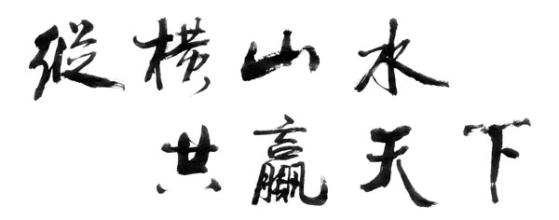 縱横山水
共赢天下